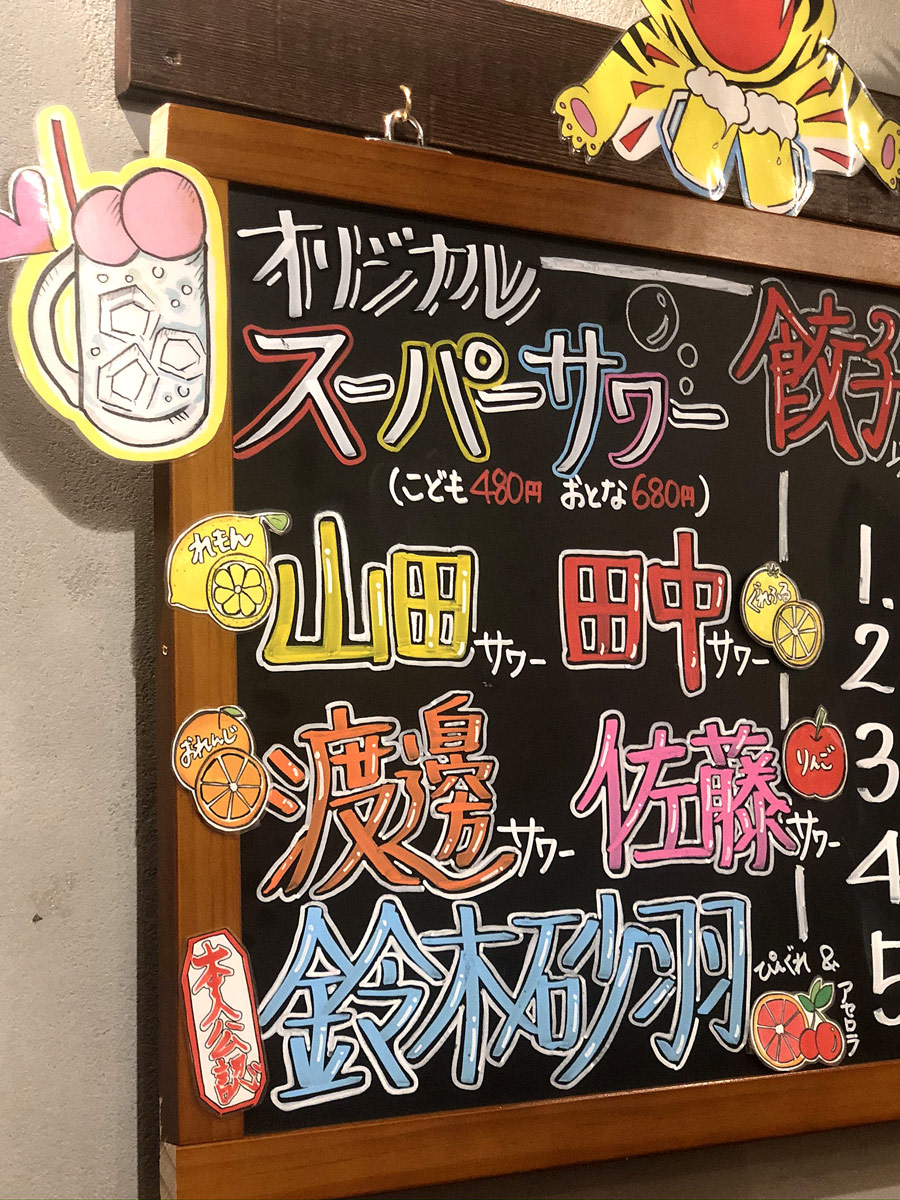 オリジナル
スーパーサワー
(こども480円 おとな680円)
れもん
山田サワー
田中サワー
ぐれふる
おれんじ
渡邊サワー
佐藤サワー
りんご
本人公認
鈴木砂羽
ぴんぐれ &
アセロラ
餃子
1.
2
3
4
5